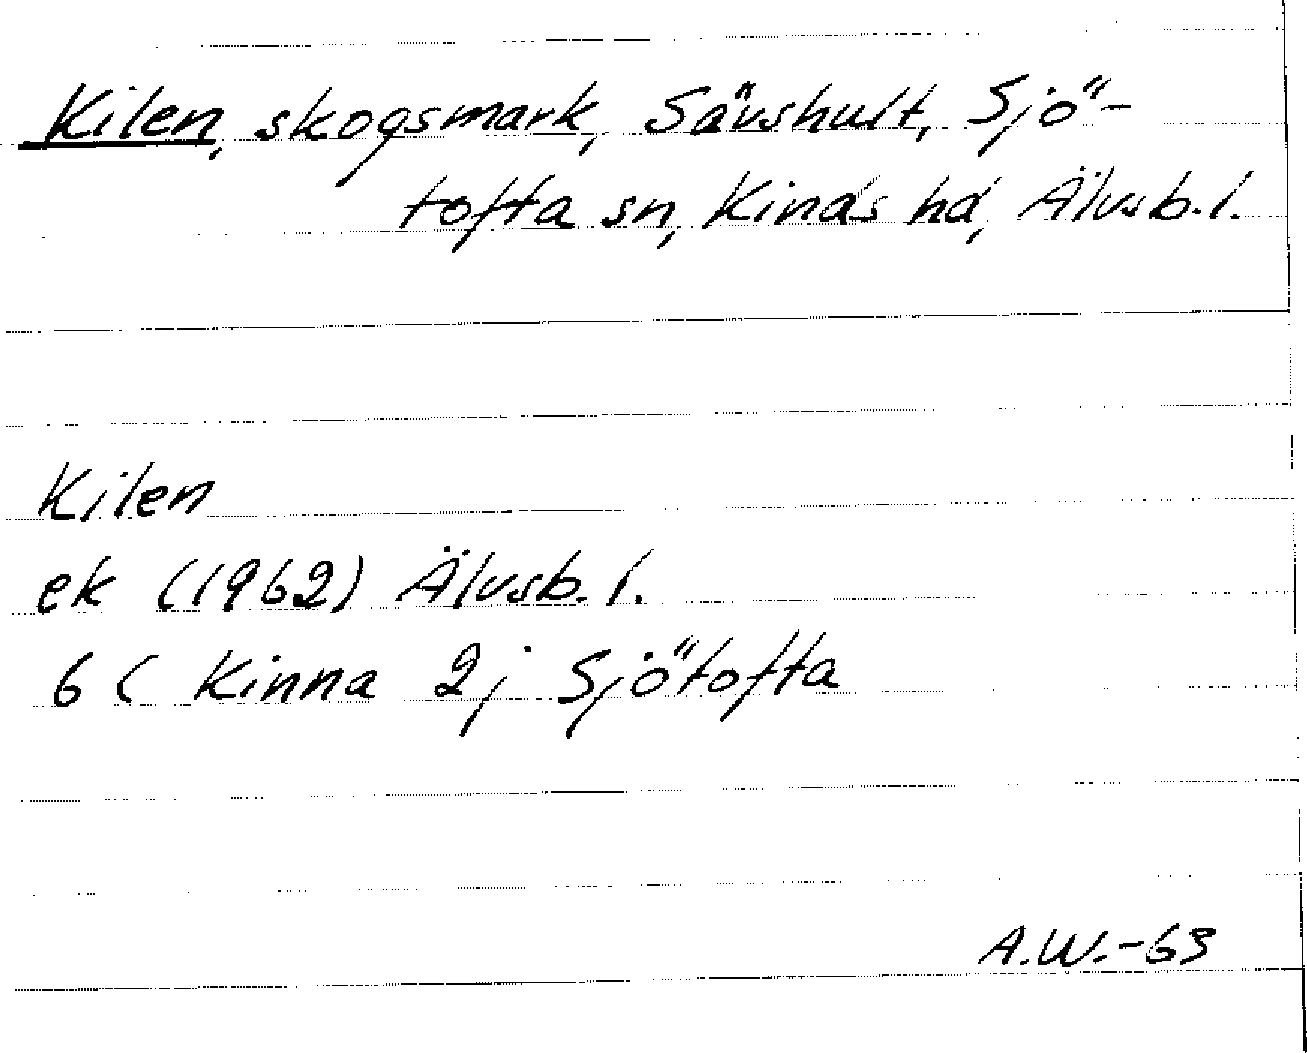 Kilen, skogsmark, Sävshult, Sjö-
tofta sn, Kinds hd, Älvsb. l.
Kilen
ek (1962) Älvsb. l.
6 C Kinna 2j Sjötofta
A.W.-63